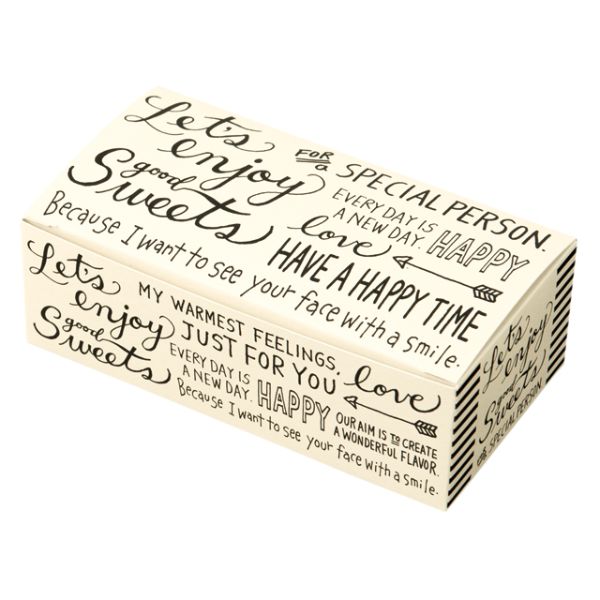 Let's
enjoy
good
Sweets
FOR
a SPECIAL PERSON.
EVERY DAY IS
A NEW DAY. HAPPY
love
HAVE A HAPPY TIME
Because I want to see your face with a smile.
Let's
enjoy
good
Sweets
MY WARMEST FEELINGS,
JUST FOR YOU
love
EVERY DAY IS
A NEW DAY. HAPPY
OUR AIM IS TO CREATE
A WONDERFUL FLAVOR.
Because I want to see your face with a smile.
Let's
enjoy
good
Sweets
FOR
a SPECIAL PERSON